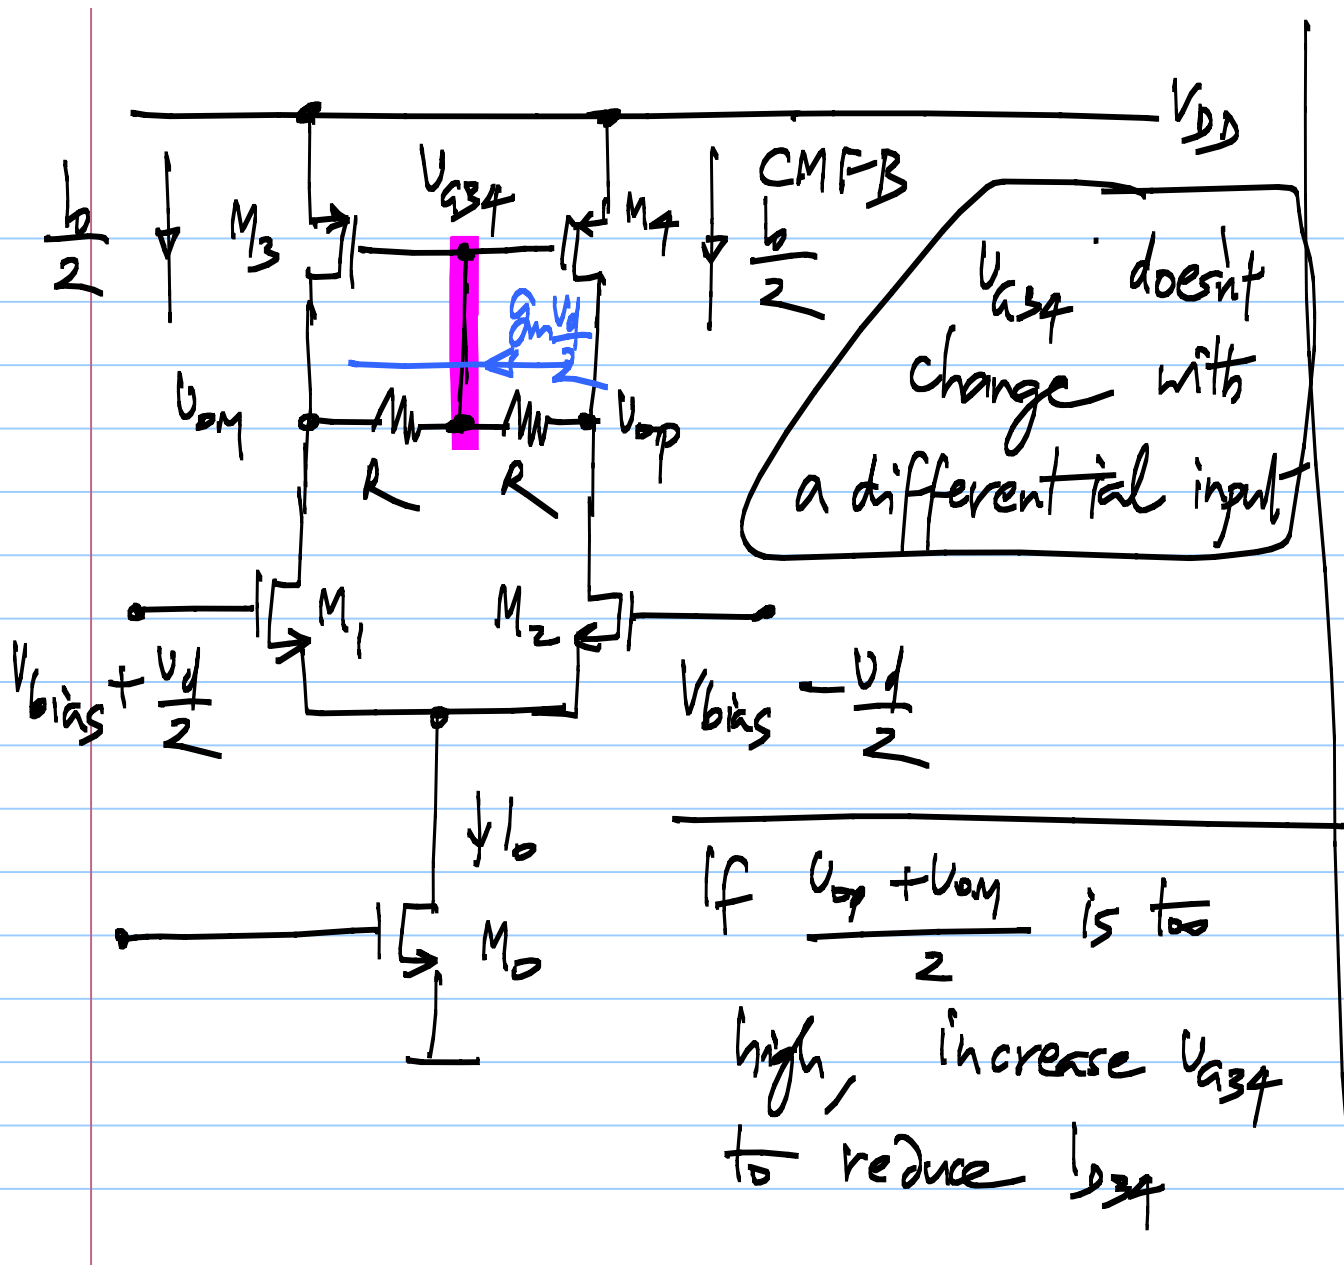 V_DD
CMFB
I_0/2
V_G34
M_3
M_4
I_0/2
g_m v_d/2
V_OM
V_OP
R
R
V_G34 doesn't
change with
a differential input
M_1
M_2
V_bias + v_d/2
V_bias - v_d/2
I_0
M_0
If (V_OP + V_OM)/2 is too
high, increase V_G34
to reduce I_D34